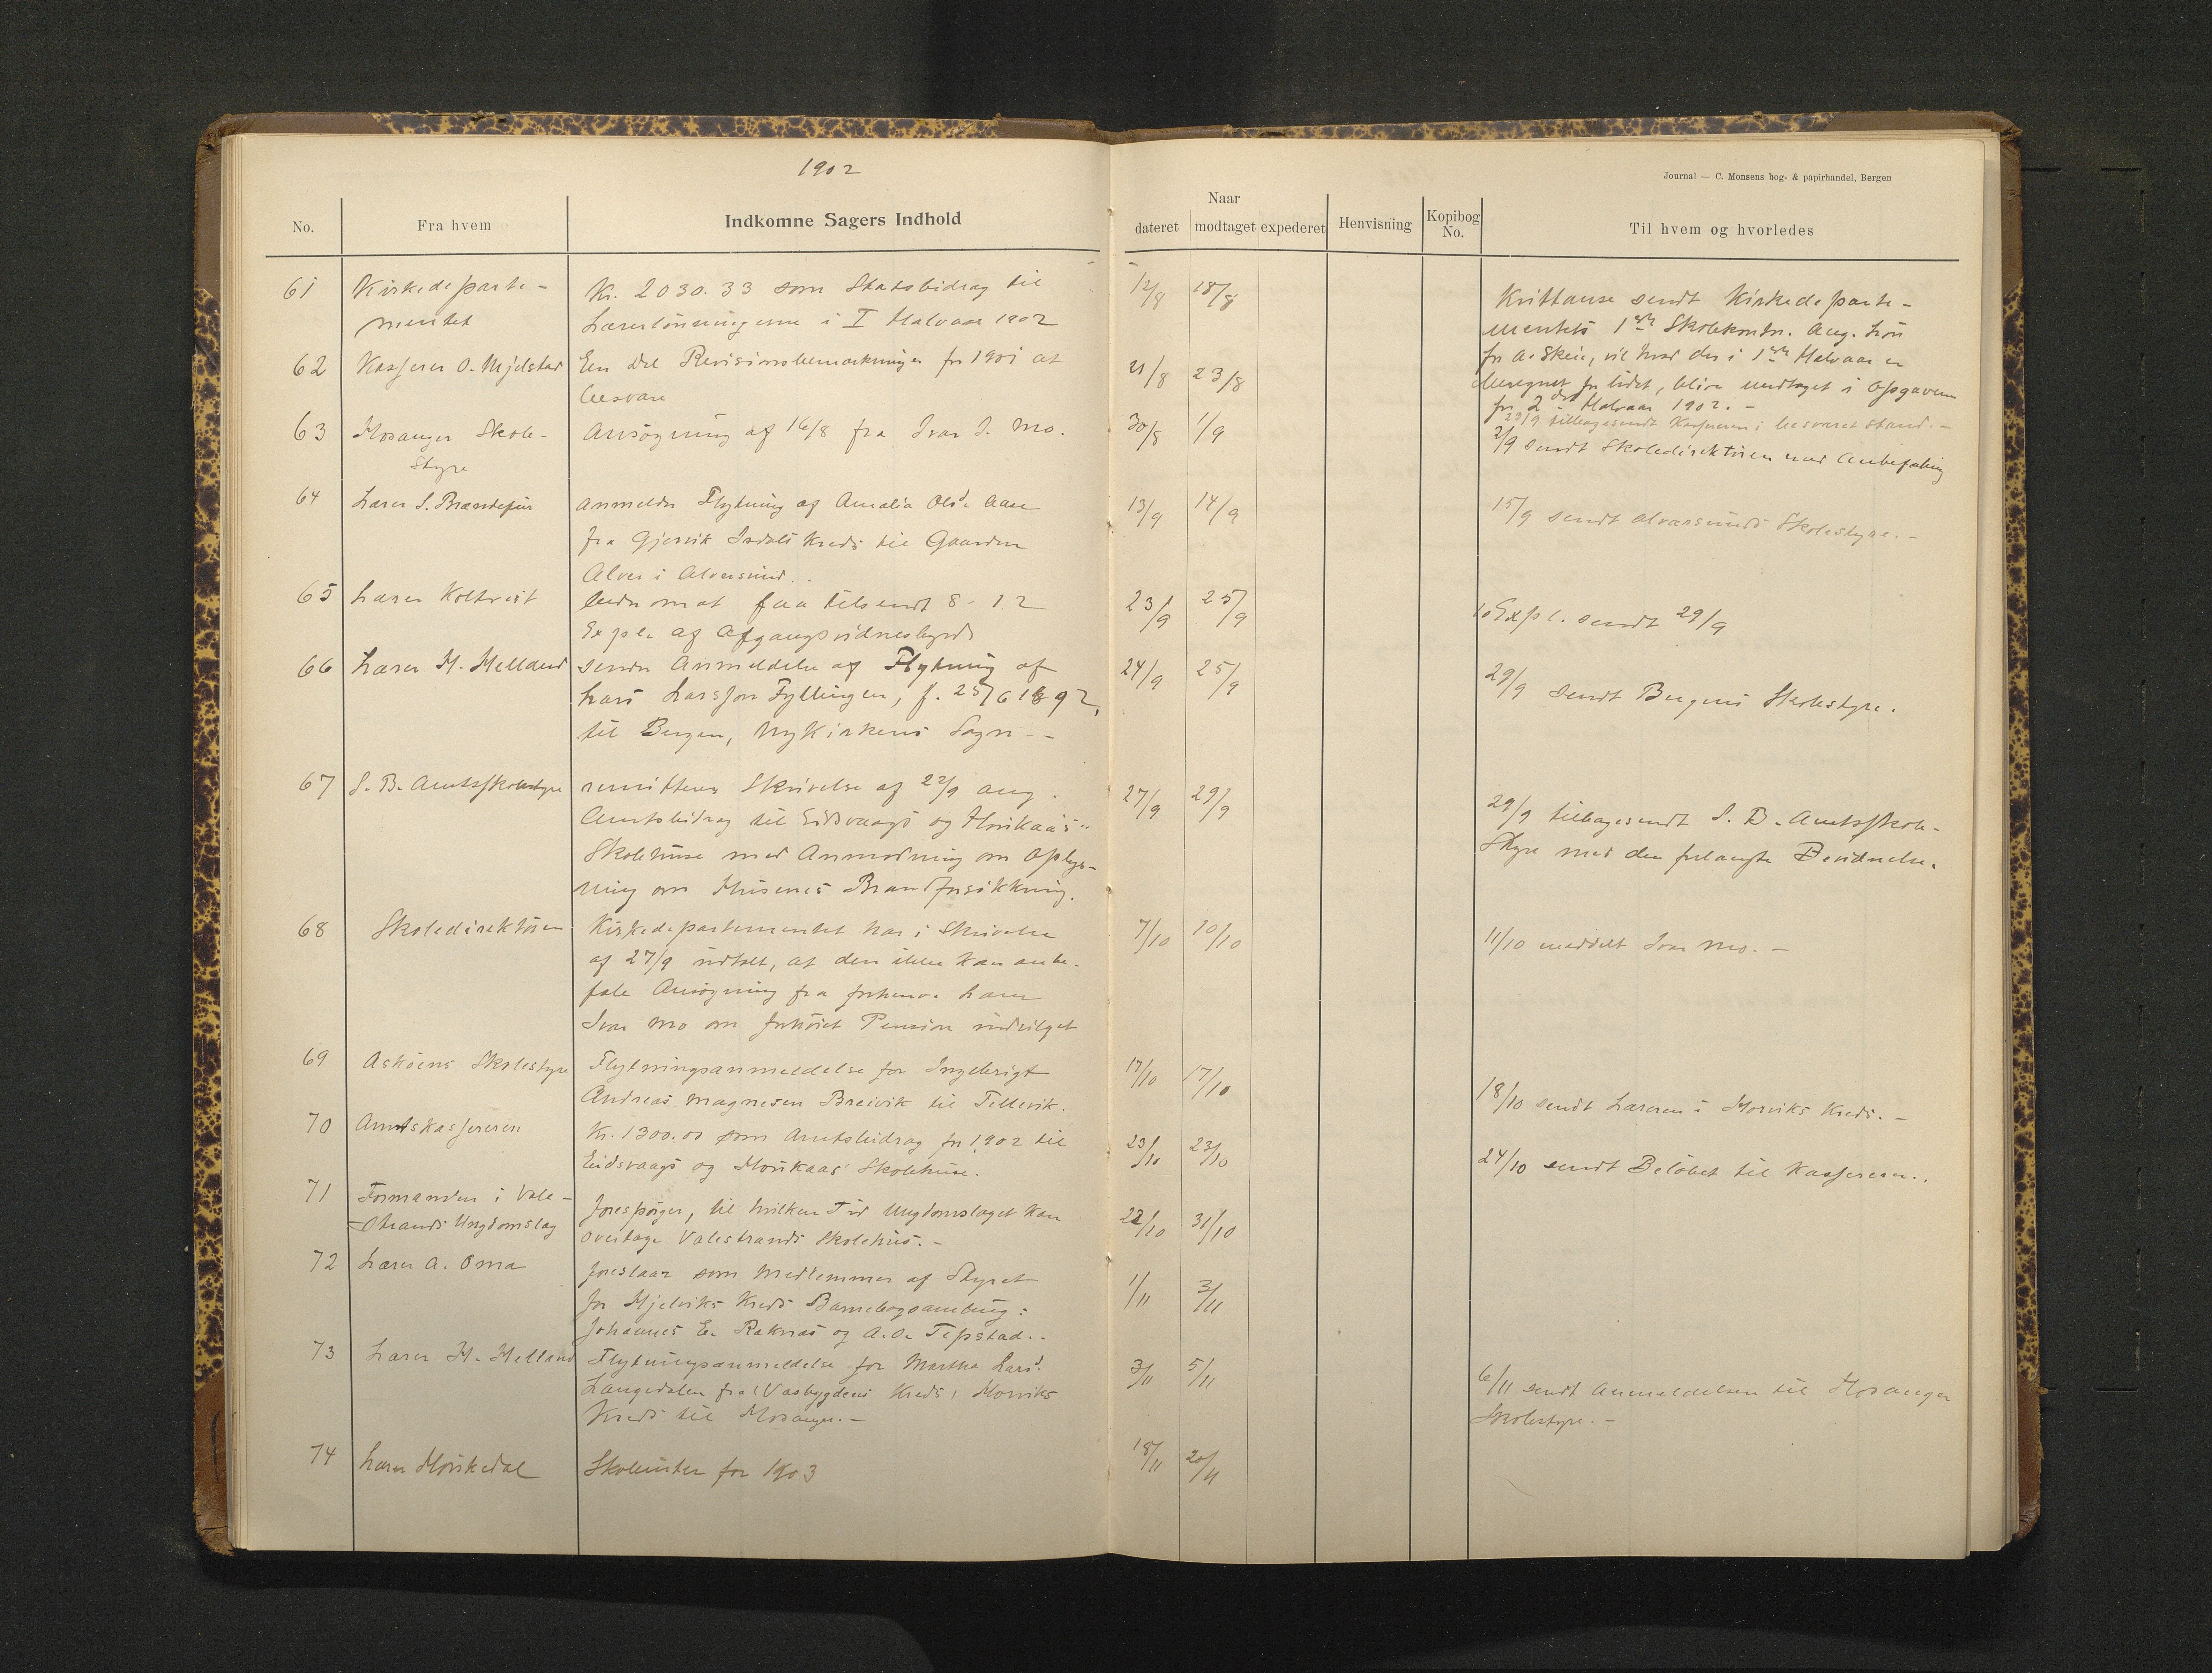 1902
Journal — C. Monsens bog- & papirhandel, Bergen
No.
Fra hvem
Indkomne Sagers Indhold
Naar
dateret
modtaget
expederet
Henvisning
Kopibog No.
Til hvem og hvorledes
61
Kirkedeparte-
mentet
Kr. 2030.33 som Statsbidrag til
Lærerlönningerne i I Halvaar 1902
12/8
18/8
Kvittanse sendt Kirkedeparte-
mentets 1ste Skolekontr. Ang. Lön
fr A. Skeie, vil hvad der i 1ste Halvaar er
beregnet for lidet, blive medtaget i Opgaven
for 2det Halvaar 1902. -
62
Kasserer O. Mjelstad
En Del Revisionsbemærkninger fr 1901 at
besvare
21/8
23/8
29/9 tilbagesendt Kassereren i besvaret Stand. -
63
Hosanger Skole-
styre
Ansögning af 16/8 fra Ivar I. Mo.
30/8
1/9
2/9 sendt Skoledirektören med Anbefaling
64
Lærer S. Brændefur
anmelder Flytning af Amalia Olsd. Aase
fra Gjervik Isdals Kreds til Gaarden
Alver i Alversund.
13/9
14/9
15/9 sendt Alversunds Skolestyre. -
65
Lærer Koltveit
beder om at faa tilsendt 8-12
Expl. af Afgangsvidnesbyrd
23/9
25/9
10 Expl. sendt 29/9
66
Lærer H. Helland
sender Anmeldelse af Flytning af
Lars Larssøn Fyllingen, f. 25/6 1892,
til Bergen, Nykirkens Sogn. -
24/9
25/9
29/9 sendt Bergens Skolestyre.
67
S. B. Amtsskolestyre
remitterer Skrivelse af 22/9 ang.
Amtsbidrag til Eidsvaags og Horikaas
Skolehuse med Anmodning om Oplys-
ning om Husenes Brandforsikkring.
27/9
29/9
29/9 tilbagesendt S. B. Amtsskole-
styre med den forlangte Bevidnelse.
68
Skoledirektören
Kirkedepartementet har i Skrivelse
af 27/9 udtalt, at den ikke kan anbe-
fale Ansögning fra forhenv. Lærer
Ivar Mo om forhöiet Pension indvilget
7/10
10/10
11/10 meddelt Ivar Mo. -
69
Asköens Skolestyre
Flytningsanmeldelse for Ingebrigt
Andreas Magnesen Breivik til Tellevik.
17/10
17/10
18/10 sendt Læreren i Morviks Kreds. -
70
Amtskassereren
Kr. 1300.00 som Amtsbidrag for 1902 til
Eidsvaags og Horikaas' Skolehuse.
23/10
23/10
24/10 sendt Belöbet til Kassereren.
71
Formanden i Vale-
strands Ungdomslag
forespörger, til hvilken Tid Ungdomslaget kan
overtage Valestrands Skolehus. -
22/10
31/10
72
Lærer A. Oma
foreslaar som Medlemmer af Styret
for Mjelviks Kreds Barnebogsamling:
Johannes E. Raknæs og A. O. Tepstad.
1/11
3/11
73
Lærer H. Helland
Flytningsanmeldelse for Martha Larsd.
Langedalen fra Vasbygdens Kreds, Morviks
Kreds til Hosanger. -
3/11
5/11
6/11 sendt Anmeldelsen til Hosanger
Skolestyre. -
74
Lærer
for 1903
18/11
20/11